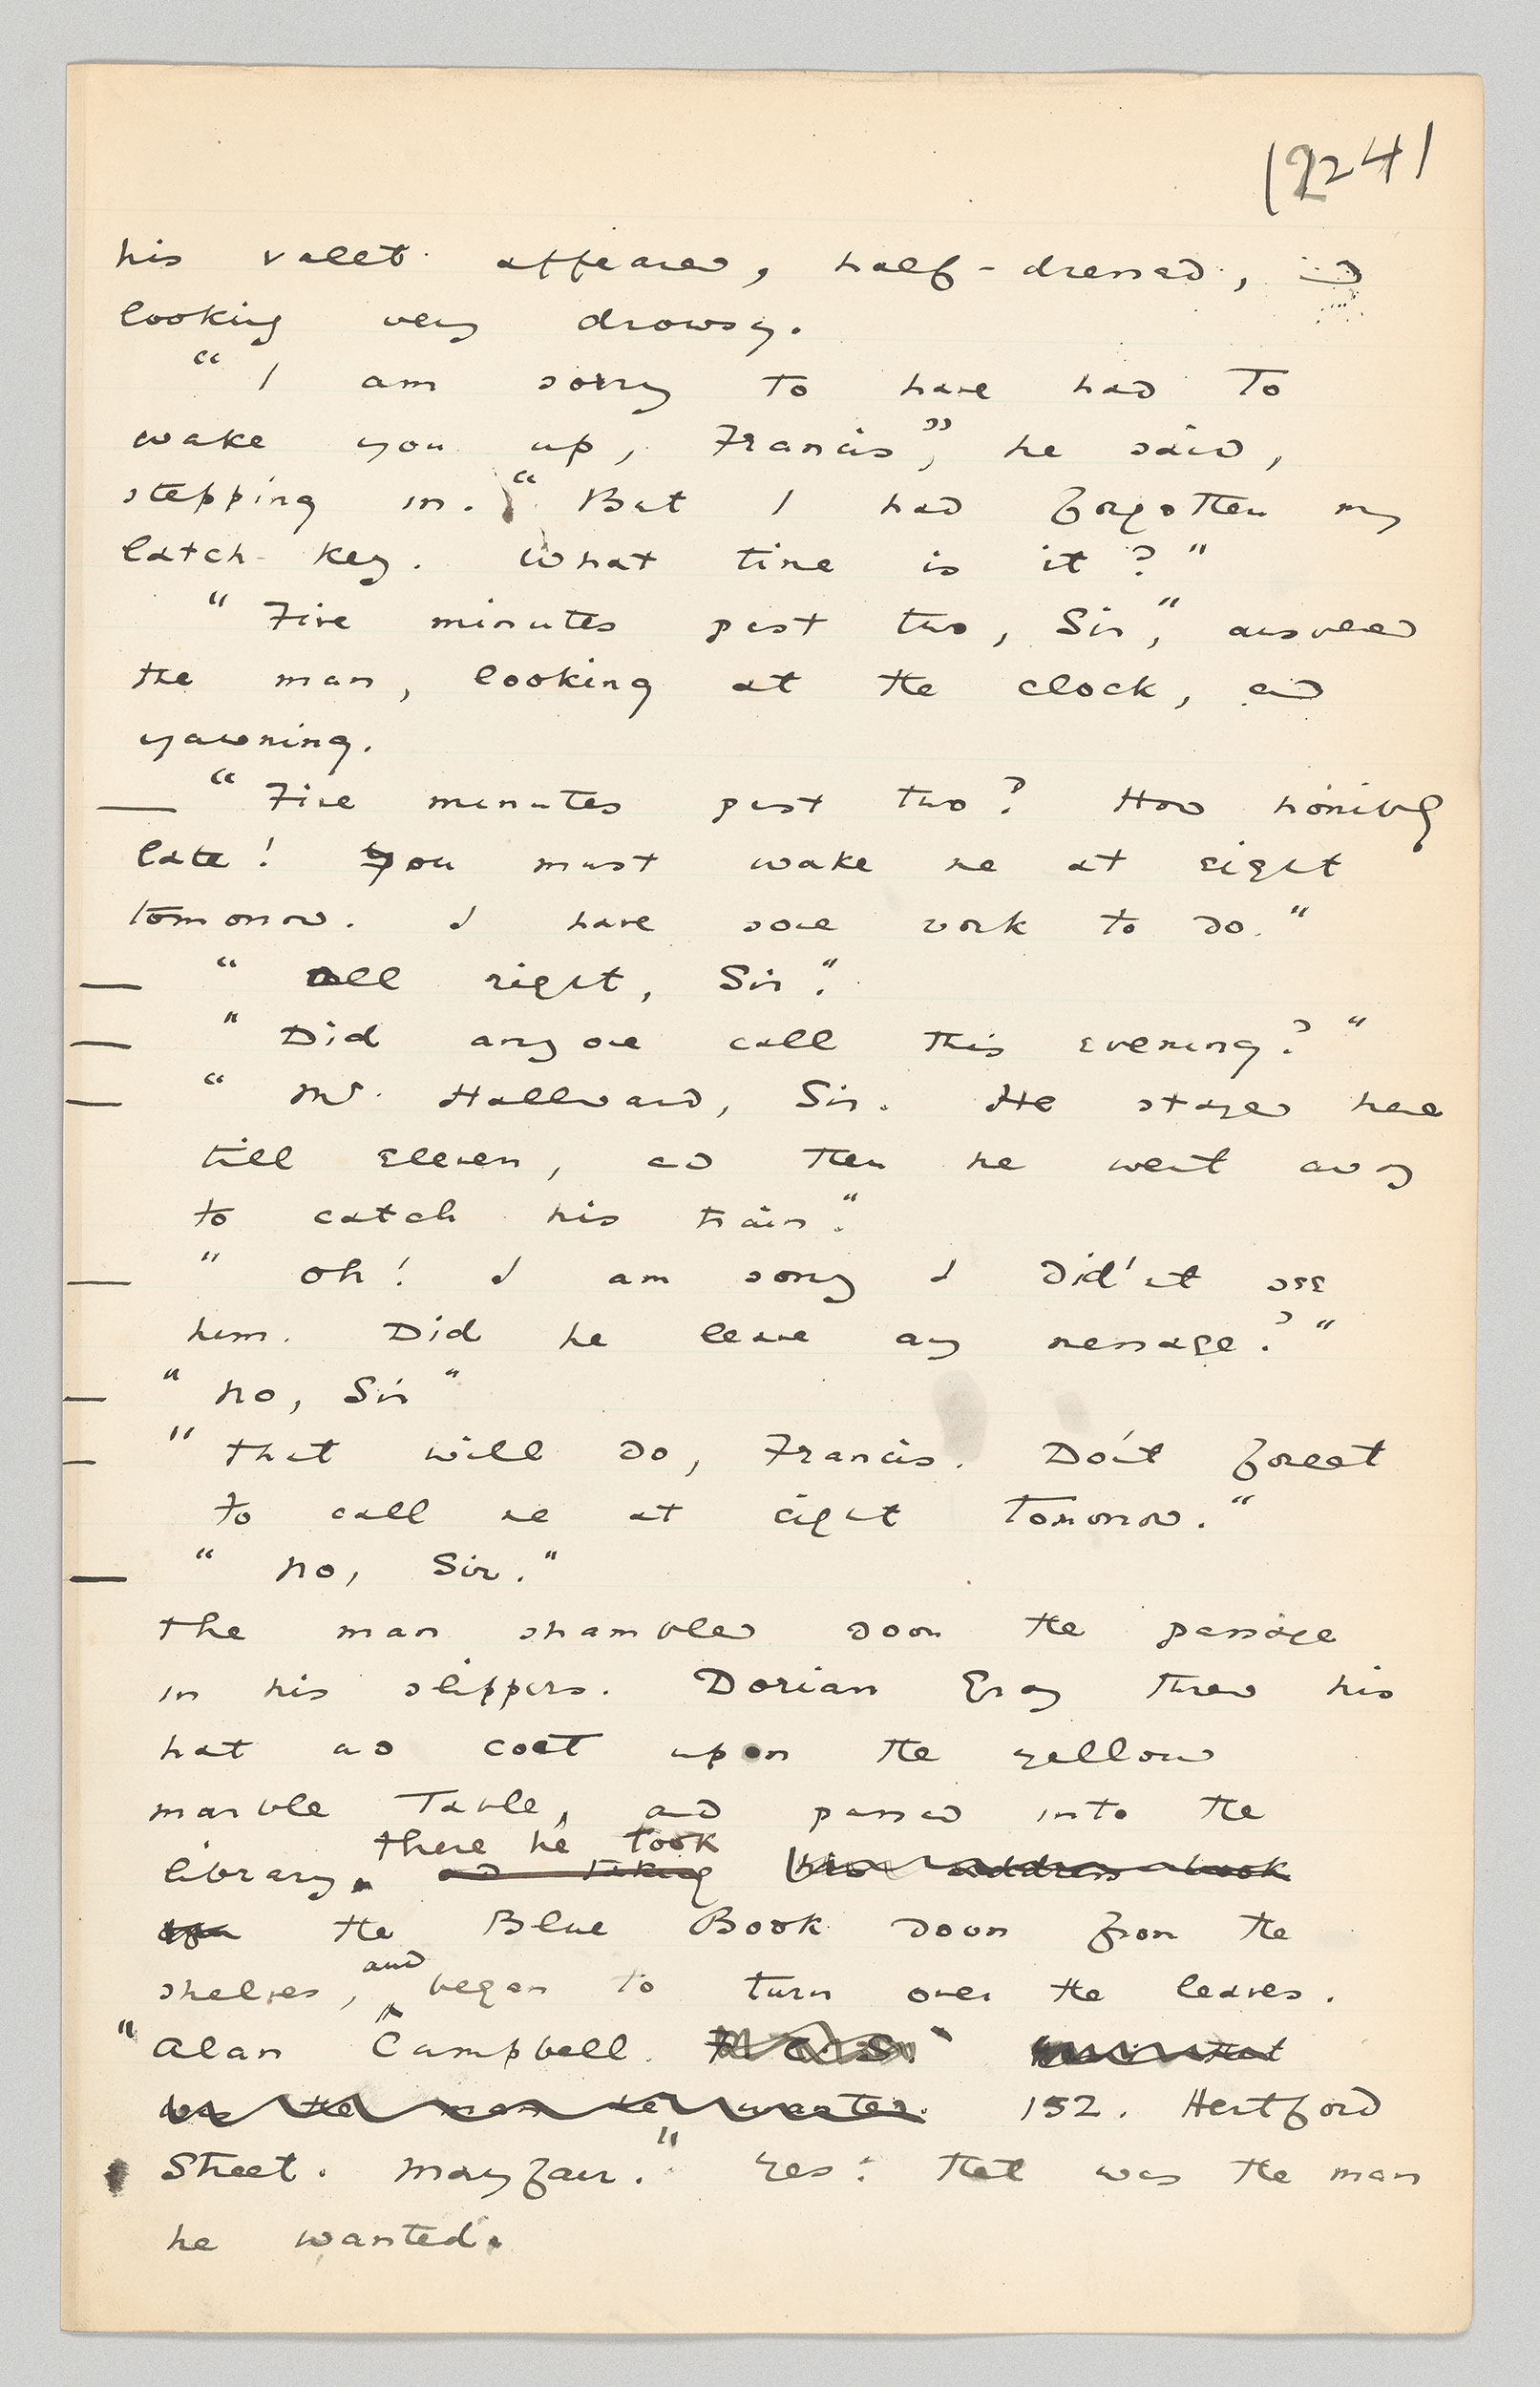 224
his valet appeared, half-dressed, and
looking very drowsy.
" I am sorry to have had to
wake you up, Francis", he said,
stepping in. " But I had forgotten my
latch key. What time is it? "
" Five minutes past two, Sir," answered
the man, looking at the clock, and
yawning.
— " Five minutes past two? How horribly
late! You must wake me at eight
tomorrow. I have some work to do. "
— " All right, Sir."
— " Did any one call this evening? "
— " Mr. Hallward, Sir. He stayed here
till eleven, and then he went away
to catch his train."
— " Oh! I am sorry I did'nt see
him. Did he leave any message? "
— " No, Sir "
— " That will do, Francis. Don't forget
to call me at eight tomorrow. "
— " No, Sir. "
The man shambled down the passage
in his slippers. Dorian Gray threw his
hat and coat upon the yellow
marble table, and passed into the
there he took
library. and taking his address book
the Blue Book down from the
and
shelves, began to turn over the leaves.
" Alan Campbell.
was the man he wanted. 152. Hertford
Street. Mayfair. " Yes: that was the man
he wanted.